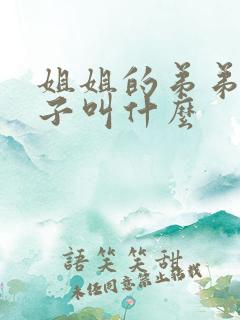 姐姐的弟弟
子叫什麼
語笑笑甜
未經同意禁止轉載